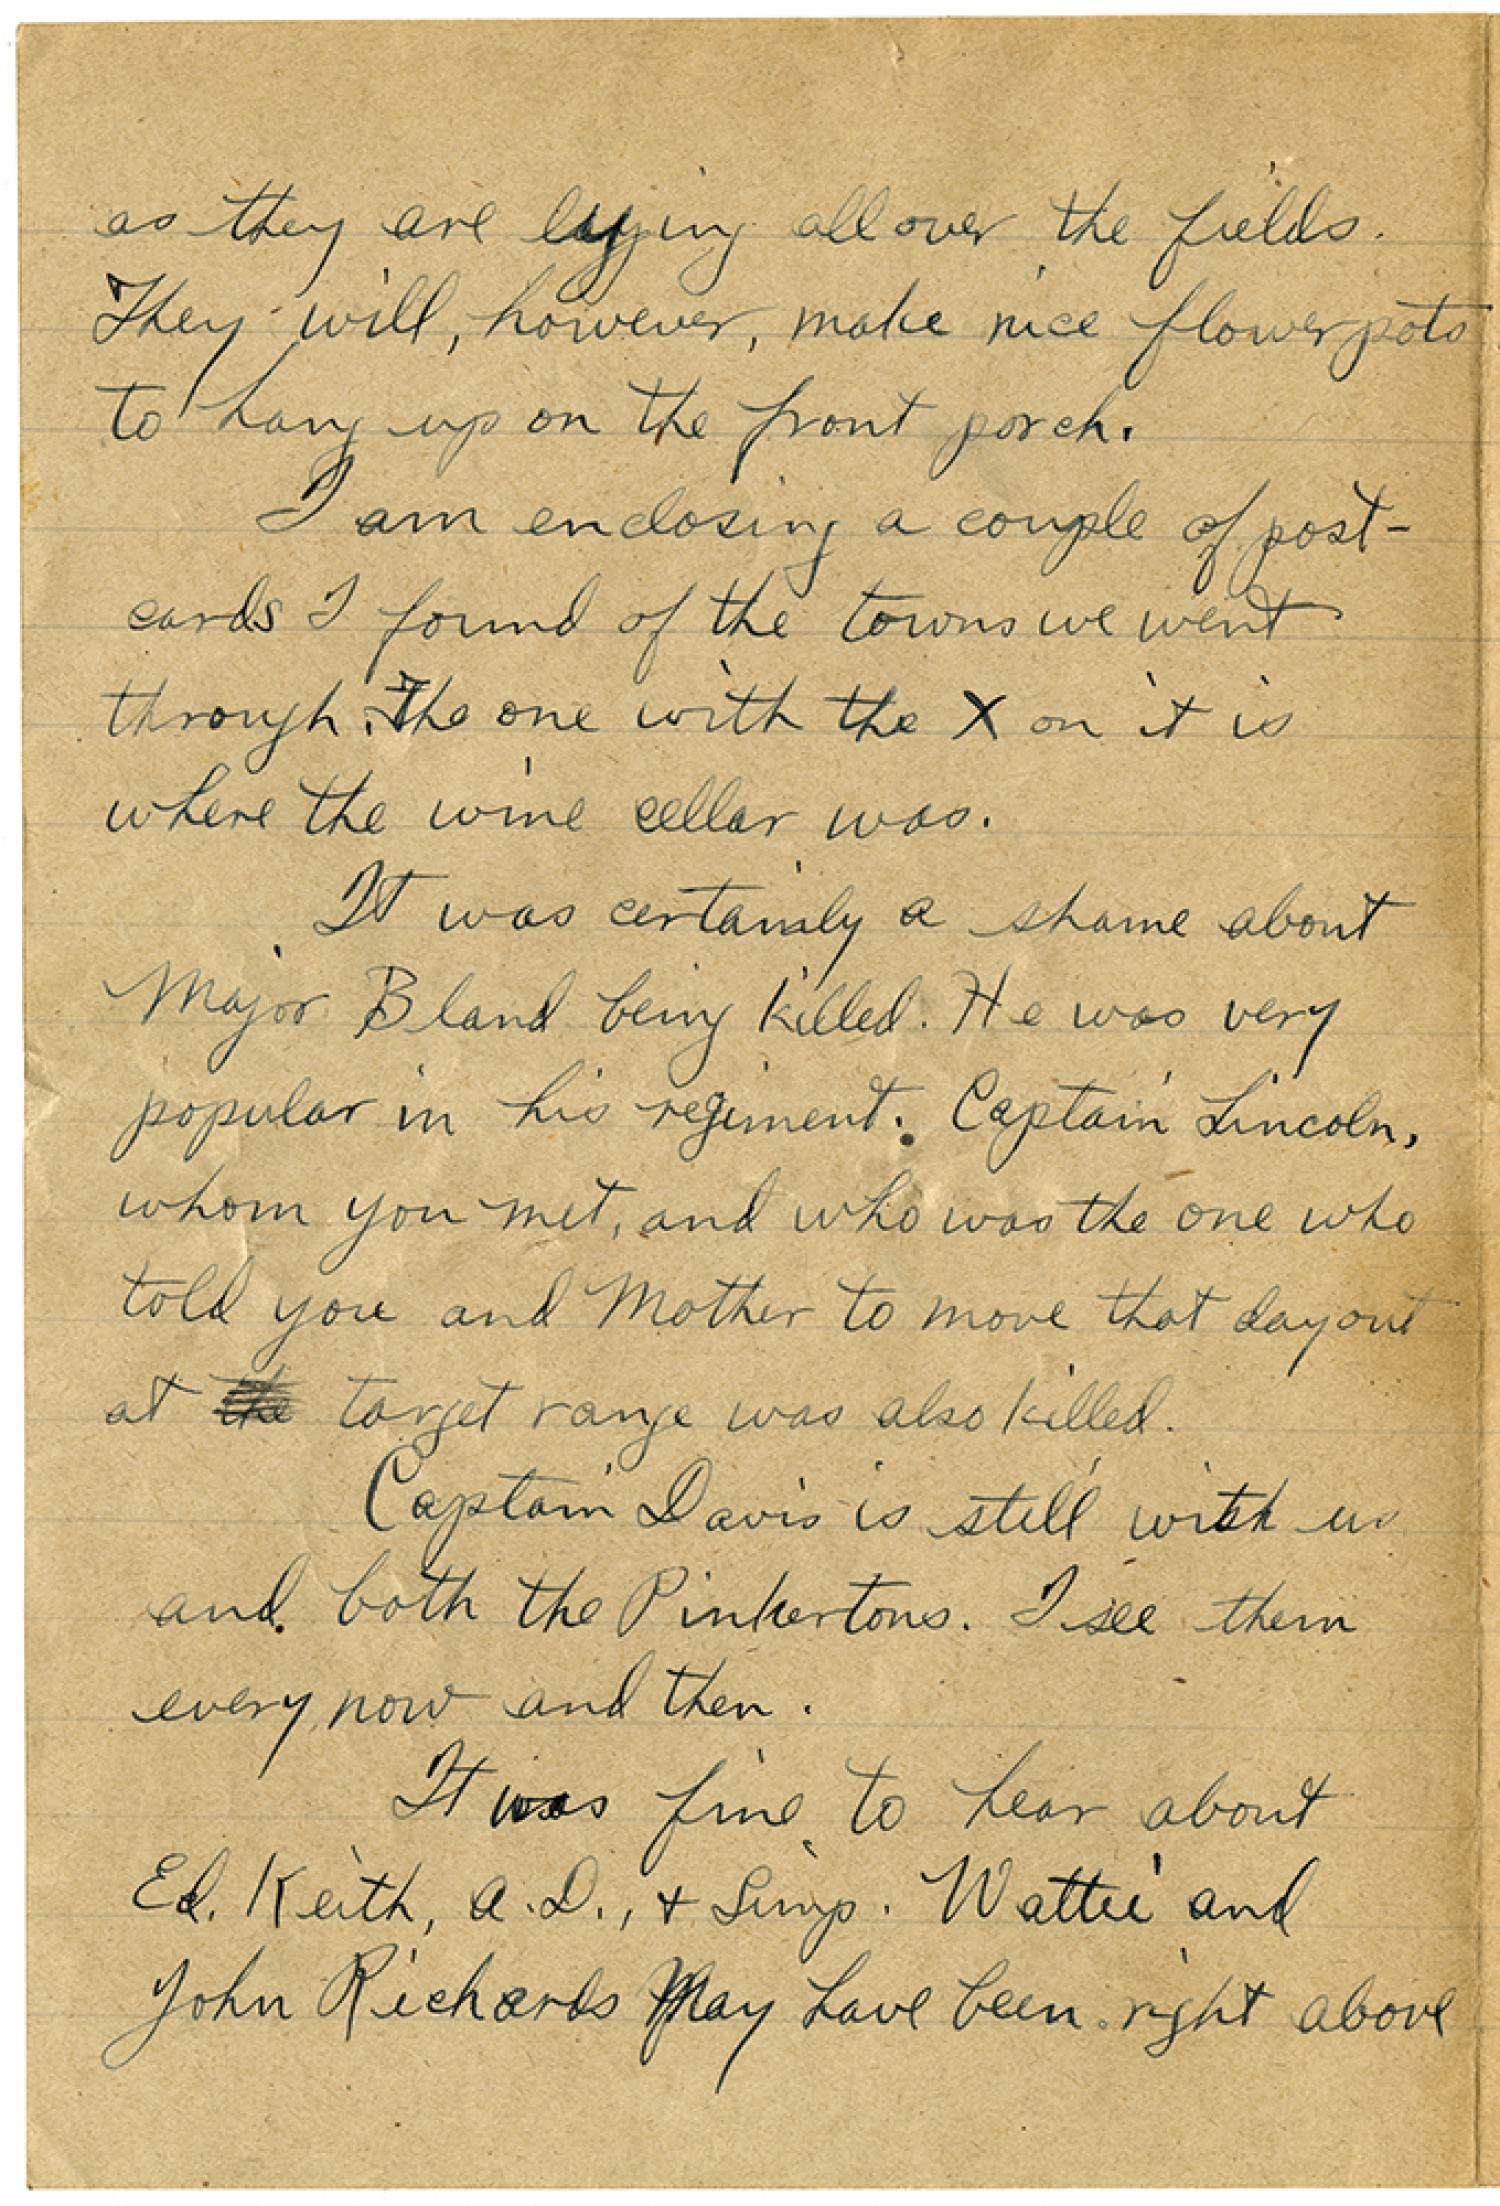 as they are lying all over the fields.
They will, however, make nice flowerpots
to hang up on the front porch.
I am enclosing a couple of post-
cards I found of the towns we went
through. The one with the X on it is
where the wine cellar was.
It was certainly a shame about
Major Bland being killed. He was very
popular in his regiment. Captain Lincoln,
whom you met, and who was the one who
told you and Mother to move that day out
at the target range was also killed.
Captain Davis is still with us
and both the Pinkertons. I see them
every now and then.
It was fine to hear about
Ed. Keith, A.D., + Simp. Wattie and
John Richards May have been right above